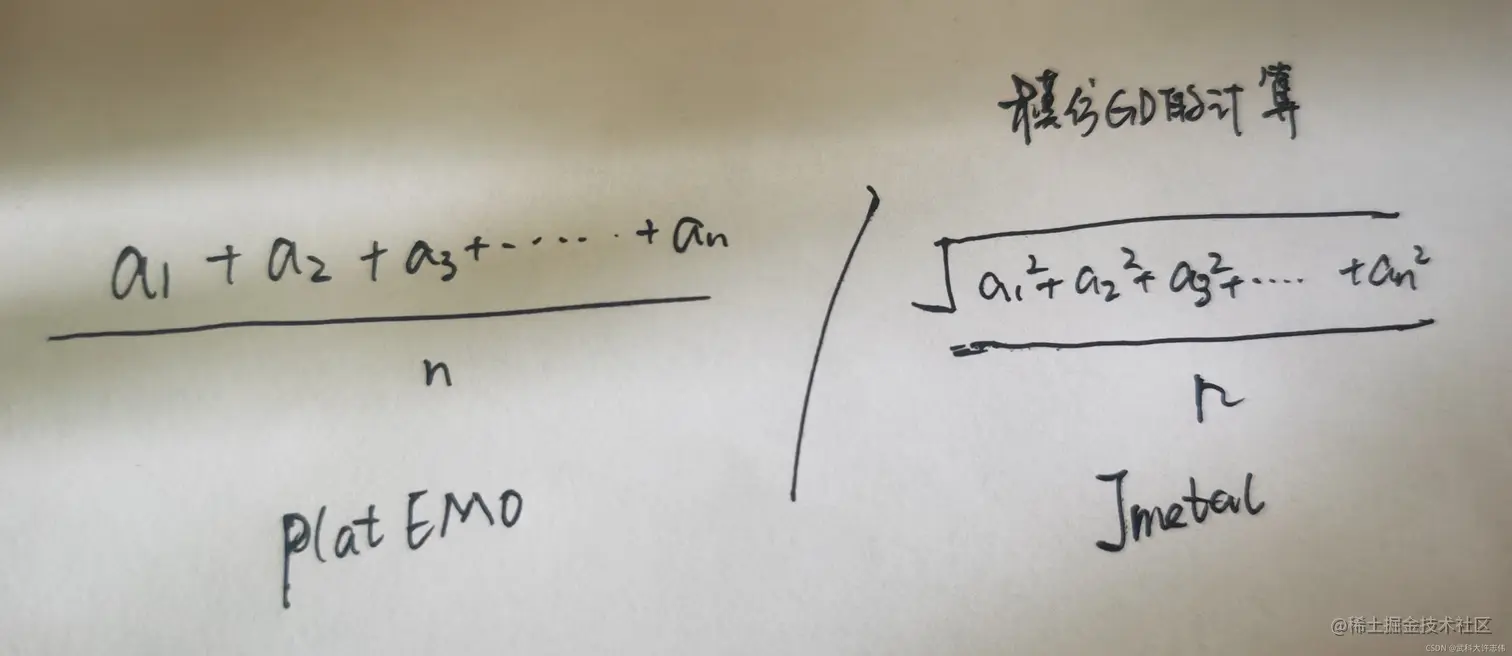 模仿GD的计算
a₁ + a₂ + a₃ + ...... + aₙ
n
√a₁² + a₂² + a₃² + .... + aₙ²
n
PlatEMO
Jmetal
@稀土掘金技术社区
CSDN @武科大许志伟